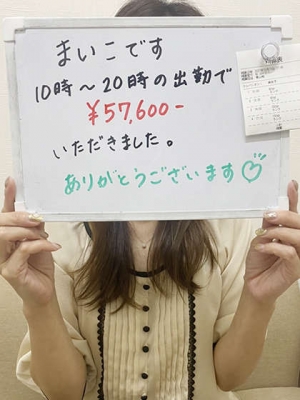 まいこです
10時～20時の出勤で
¥57,600-
いただきました。
ありがとうございます♡